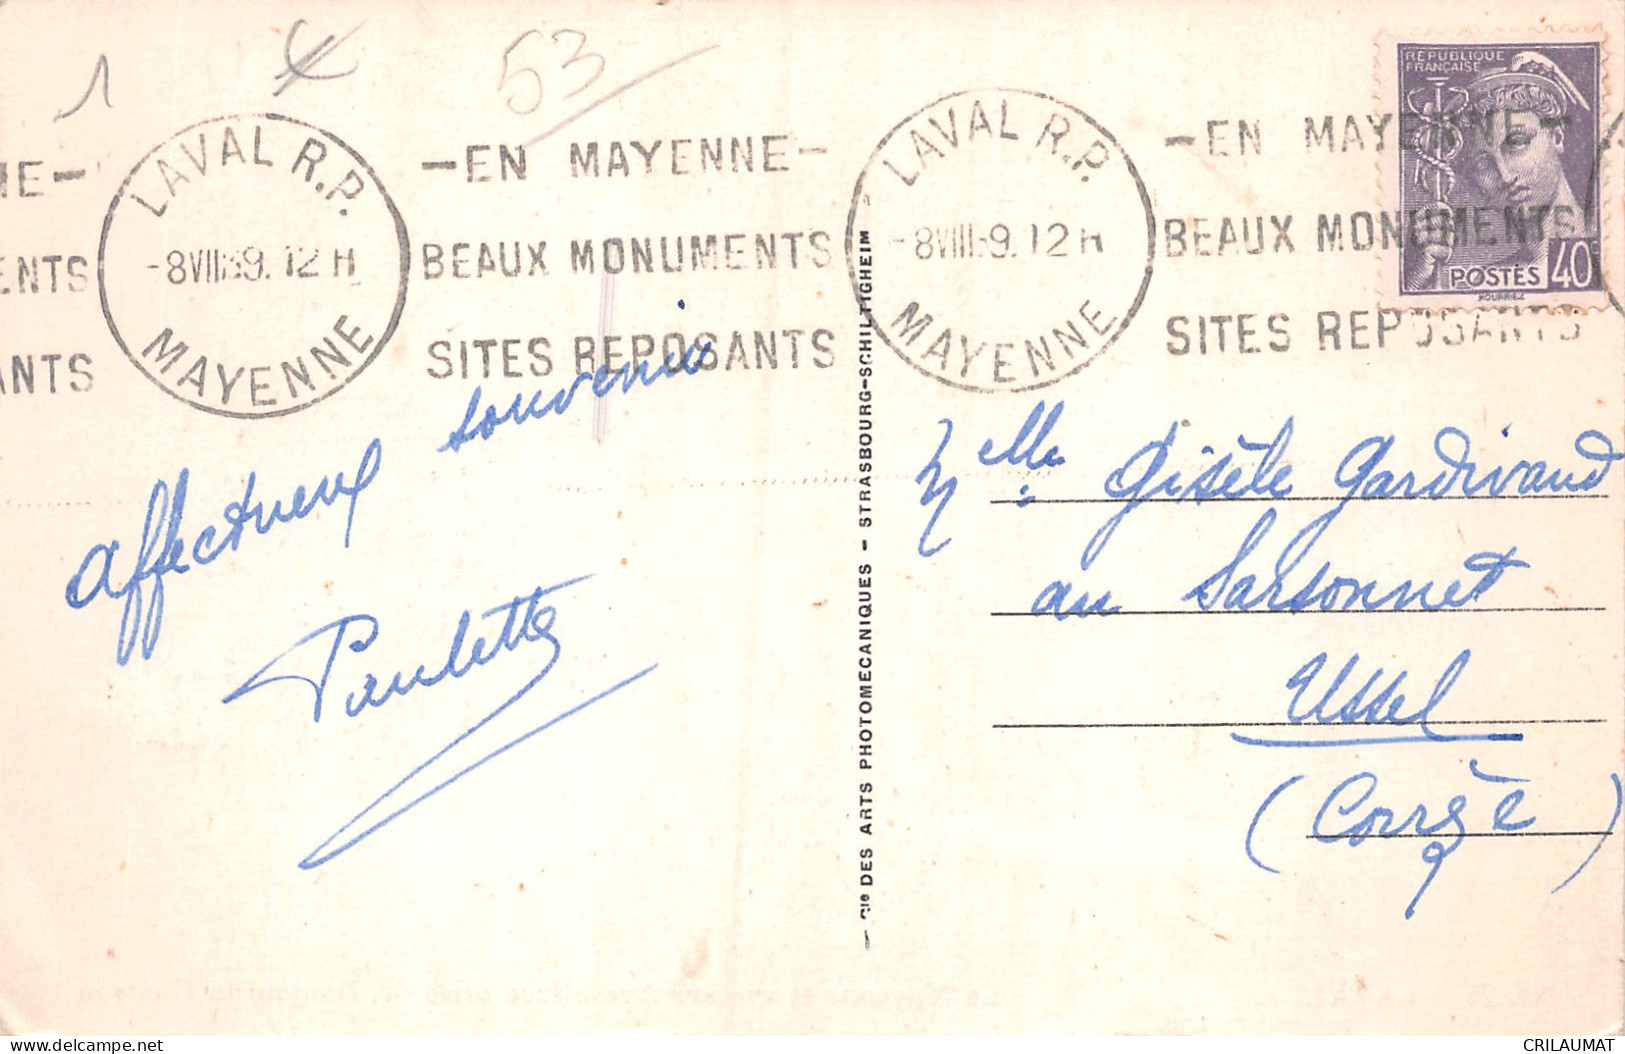 1
53
NE-
ENTS
ANTS
LAVAL R.P.
-8VIII39. 12H
MAYENNE
-EN MAYENNE-
BEAUX MONUMENTS
SITES REPOSANTS
LAVAL R.P.
-8VIII-9. 12H
MAYENNE
-EN MAYENNE-
BEAUX MONUMENTS
SITES REPOSANTS
REPUBLIQUE
FRANÇAISE
POSTES 40c
HOURRIEZ
affectueux souvenir
Paulette
- Cie DES ARTS PHOTOMECANIQUES - STRASBOURG-SCHILTIGHEIM
Melle Gisèle Gardivaud
au Sarsonnet
Ussel
(Corrèze)
CRILAUMAT
delcampe.net